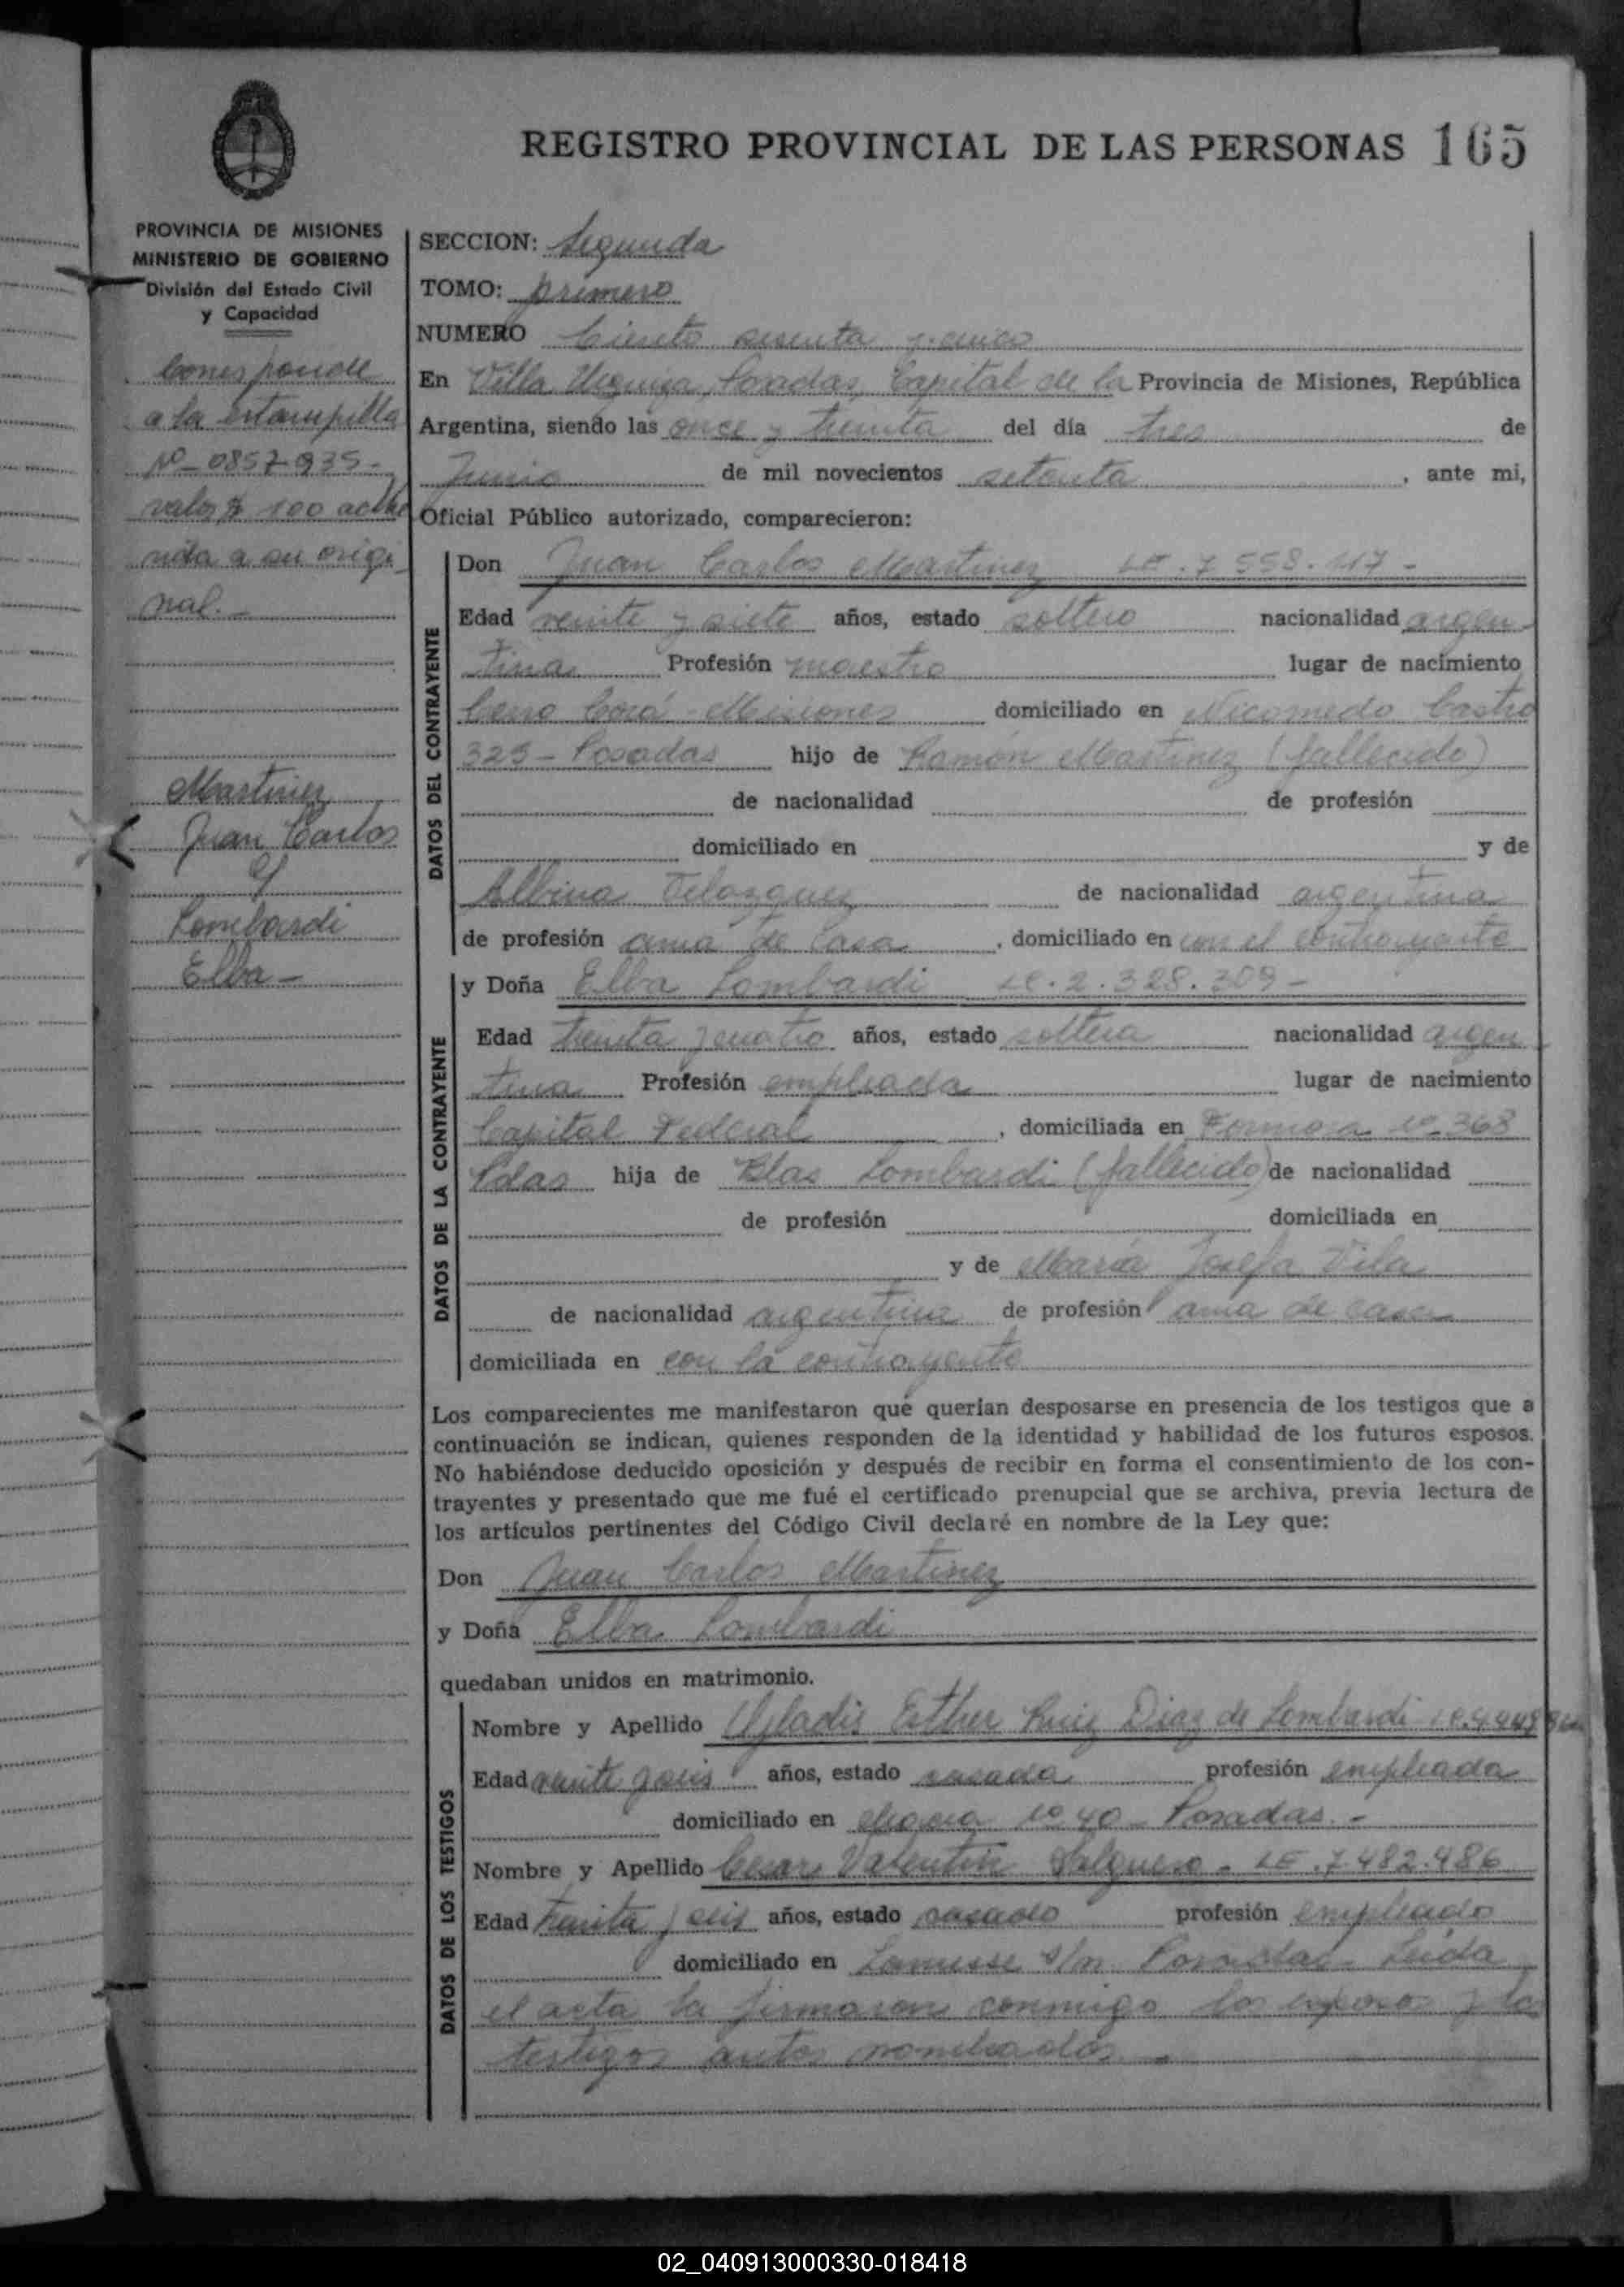 REGISTRO PROVINCIAL DE LAS PERSONAS 165
PROVINCIA DE MISIONES
MINISTERIO DE GOBIERNO
División del Estado Civil
y Capacidad
Corresponde
a la estampilla
Nº 0857935-
valor $ 100 adhe
rida a su origi
nal.-
Martinez
Juan Carlos
y
Lombardi
Elba-
SECCION: Segunda
TOMO: primero
NUMERO Ciento sesenta y cinco
En Villa Urquiza, Posadas, Capital de la Provincia de Misiones, República
Argentina, siendo las once y treinta del día tres de
Junio de mil novecientos setenta, ante mi,
Oficial Público autorizado, comparecieron:
DATOS DEL CONTRAYENTE
Don Juan Carlos Martinez LE. 7.558.117-
Edad veinte y siete años, estado soltero nacionalidad argen-
tina Profesión maestro lugar de nacimiento
Cerro Corá-Misiones domiciliado en Nicomedo Castro
329- Posadas hijo de Ramón Martinez (fallecido)
de nacionalidad de profesión
domiciliado en y de
Albina Velazquez de nacionalidad argentina
de profesión ama de casa, domiciliado en con el contrayente
DATOS DE LA CONTRAYENTE
y Doña Elba Lombardi LC. 2.328.309-
Edad treinta y cuatro años, estado soltera nacionalidad argen
tina Profesión empleada lugar de nacimiento
Capital Federal, domiciliada en Formosa Nº 368
Pdas hija de Blas Lombardi (fallecido) de nacionalidad
de profesión domiciliada en
y de María Josefa Vila
de nacionalidad argentina de profesión ama de casa
domiciliada en con la contrayente
Los comparecientes me manifestaron que querían desposarse en presencia de los testigos que a
continuación se indican, quienes responden de la identidad y habilidad de los futuros esposos.
No habiéndose deducido oposición y después de recibir en forma el consentimiento de los con-
trayentes y presentado que me fué el certificado prenupcial que se archiva, previa lectura de
los artículos pertinentes del Código Civil declaré en nombre de la Ley que:
Don Juan Carlos Martinez
y Doña Elba Lombardi
quedaban unidos en matrimonio.
DATOS DE LOS TESTIGOS
Nombre y Apellido Gladis Esther Ruiz Diaz de Lombardi
Edad veinte y seis años, estado casada profesión empleada
domiciliado en Nº 40 Posadas.-
Nombre y Apellido Cesar Valentin Salguero- LE. 7.482.486
Edad treinta y seis años, estado casado profesión empleado
domiciliado en Lanusse s/n Posadas- Leida
el acta la firmaron conmigo los esposos y los
testigos antes nombrados.-
02_040913000330-018418